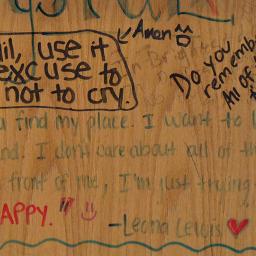 Amen
lil, use it
excuse to
not to cry.
Do you
remember
All of
find my place. I want to
nd. I don't care about all of th
front of me, I'm just trying
APPY."
-Leona Lewis